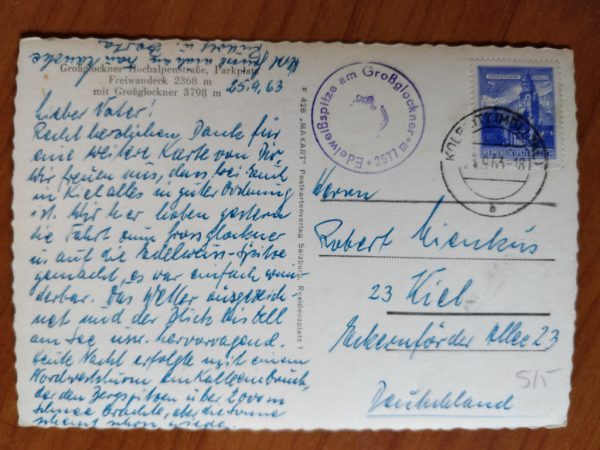 Großglockner Hochalpenstraße, Parkplatz
Freiwandeck 2368 m
mit Großglockner 3798 m
25.9.63
Lieber Vater!
Recht herzlichen Dank für
eine weitere Karte von Dir.
Wir freuen uns, dass bei Euch
in Kiel alles in guter Ordnung
ist. Wir hier haben gestern
die Fahrt zum Grossglockner
u. auf die Edelweiss-Spitze
gemacht, es war einfach wun-
derbar. Das Wetter ausgezeich-
net und der Blick bis Zell
am See usw. hervorragend.
Heute Nacht erfolgte mit einem
Nordweststurm ein Kälteeinbruch,
der den Bergspitzen über 2000 m
Schnee brachte, aber die Sonne
scheint schon wieder.
F 426 „MAKART“ Postkartenverlag Salzburg,
Edelweißspitze am Großglockner
2577 m
REPUBLIK ÖSTERREICH
63-18
b
Herrn
Robert Mienkus
23 Kiel
Eckernförder Allee 23
Deutschland
5/5